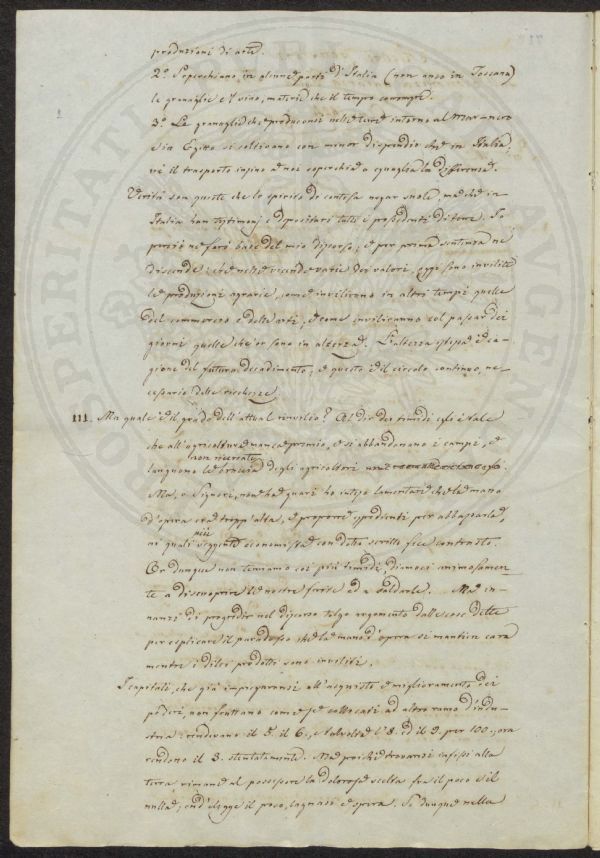 produzioni di arte.
2.° Soperchiano, in alcune parti d'Italia (non anco in Toscana)
le granaglie e 'l vino, materie che il tempo corrompe.
3.° Le granaglie che produconsi nelle terre intorno al Mar-nero
e in Egitto si coltivano con minor dispendio che in Italia,
nè il trasporto infino a noi soperchia o eguaglia la differenza.
Verità son queste che lo spirito di contesa negar suole, ma che in
Italia han testimonj e depositarj tutti i possidenti di terre. Io
perciò ne farò base del mio discorso; e per prima sentenza ne
discende: che nelle vicende varie dei valori, oggi sono invilite
le produzioni agrarie, come invilirono in altri tempi quelle
del commercio e delle arti; e come inviliranno col passar dei
giorni quelle che or sono in altezza. L'altezza istessa è ca-
gione del futuro decadimento; e questo è il circolo continuo, ne-
cessario delle ricchezze.
III. Ma quale è il grado dell'attual invilio? Al dir dei timidi esso è tale
che all'agricoltura manca premio, e si abbandonano i campi, e
non ricercate
languono le braccia degli agricoltori
Ma, o Signori, non ha guari ho inteso lamentare che la mano
d'opera era troppo alta, e proporre espedienti per abbassarla,
ai quali veggente economista con dotto scritto fece contrasto.
Or dunque non teniamo coi più timidi, diamoci animosamen-
te a discoprire le nostre ferite ed a saldarle. Ma in-
nanzi di progredir nel discorso tolgo argomento dalle cose dette
per esplicare il paradosso che la mano d'opera si mantien cara
mentre i di lei prodotti sono inviliti.
I capitali, che già impiegaronsi all'acquisto e miglioramento dei
poderi, non fruttano come se collocati ad altro ramo d'indu-
stria: rendevano il 5. il 6., e talvolta l'8. ed il 9. per 100., ora
rendono il 3. stentatamente. Ma poichè trovansi infossi alla
terra, rimane al possessore la dolorosa scelta fra il poco e il
nulla; ond'elegge il poco, lagnasi e spera. Se dunque nella
PROSPERITATIS AUGEN